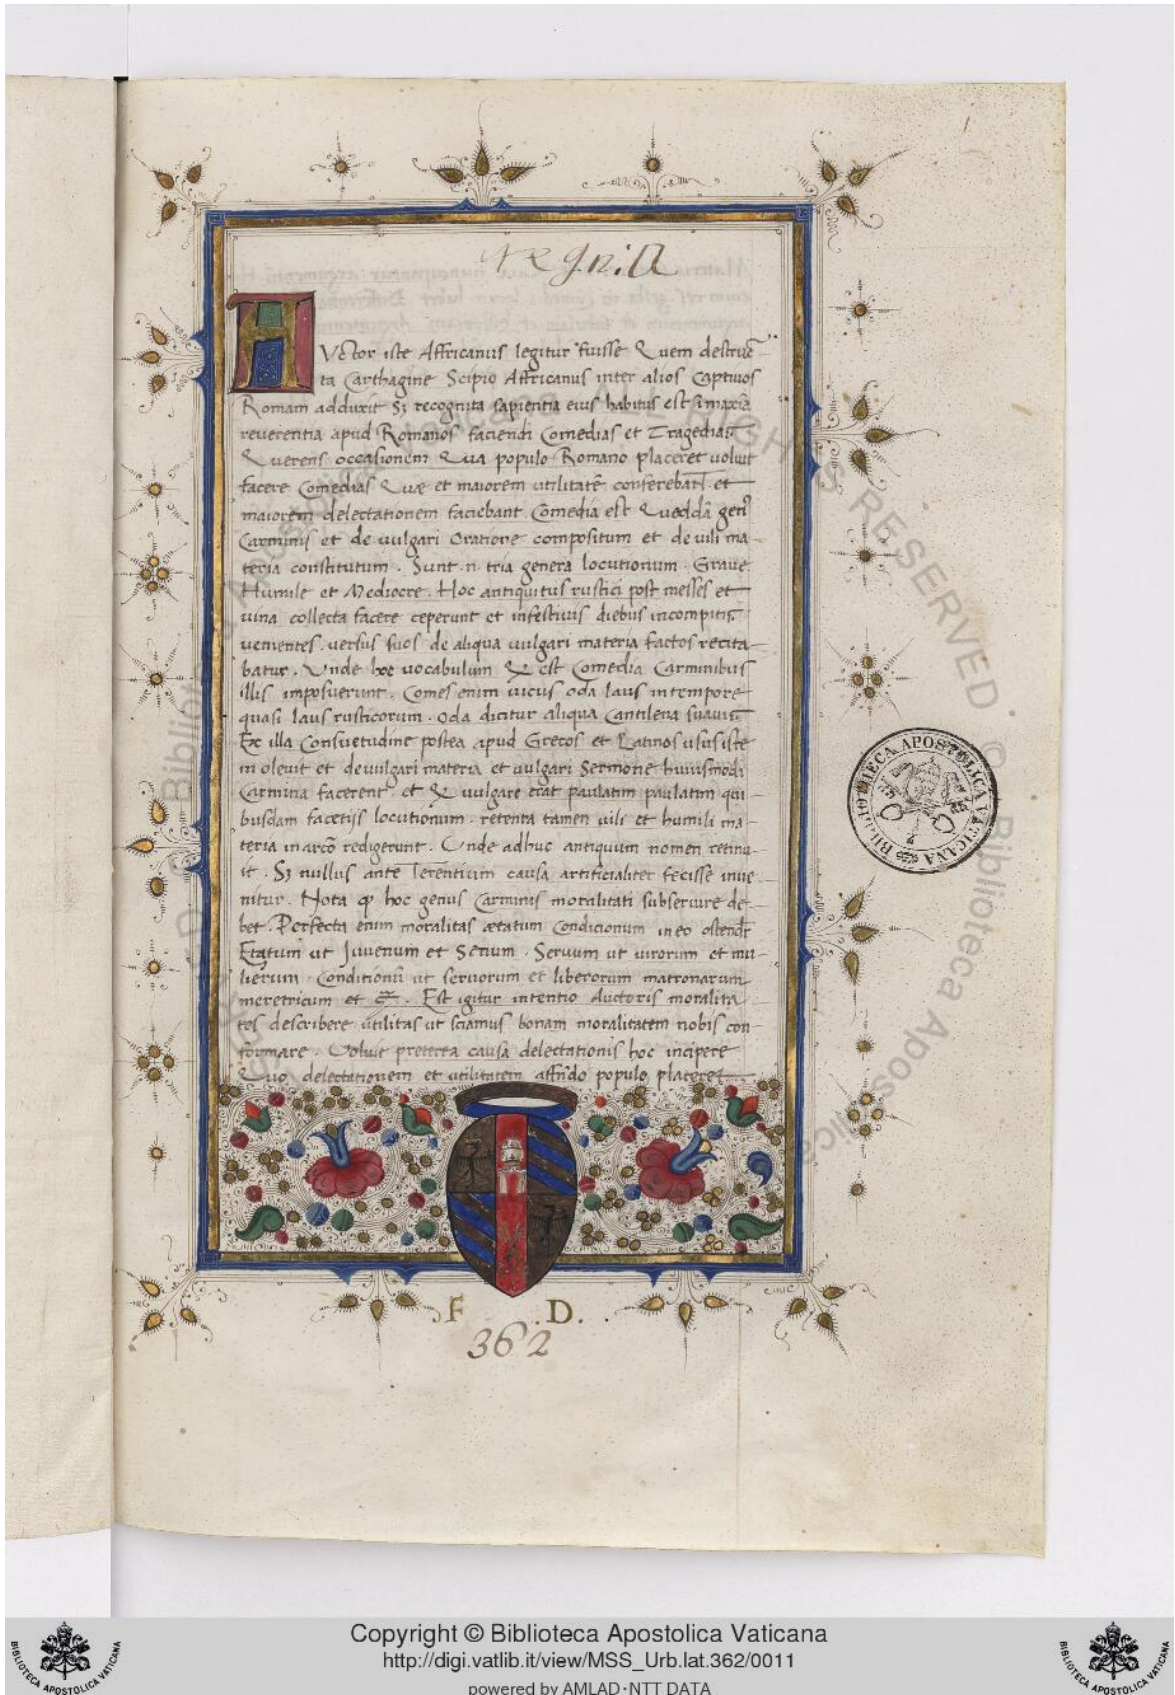 1
AUctor iste Affricanus legitur fuisse Quem destruc̄-
ta Carthagine Scipio Affricanus inter alios Captiuos
Romam adduxit Sȝ recognita sapientia eius habitus est ī maxīa
reuerentia apud Romanos faciendi Comedias et Tragedias
Querens occasionem Qua populo Romano placeret uoluit
facere Comedias Quæ et maiorem utilitatē conferebant et
maiorem delectationem faciebant Comedia est Quoddā
Carminis et de uulgari Oratione compositum et de uili ma-
teria constitutum . Sunt .n. tria genera locutionum . Graue
Humile et Mediocre . Hoc antiquitus rustici post messes et
uina collecta facere ceperunt et in festiuis diebus in compitis
uenientes . uersus suos de aliqua uulgari materia factos recita-
batur . Unde hoc uocabulum est Comedia Carminibus
illis imposuerunt . Comes enim uicus oda laus in tempore
quasi laus rusticorum . oda dicitur aliqua Cantilena suauis
Ex illa Consuetudine postea apud Grecos et Latinos usus iste
in oleuit et de uulgari materia et uulgari Sermone huiusmodi
Carmina facerent . et uulgare erat paulatim paulatim qui-
busdam facetijs locutionum . retenta tamen uili et humili ma-
teria in redigerunt . Unde adhuc antiquum nomen retinu-
it . Sȝ nullus ante Terentium causa artificialiter fecisse inue-
nitur . Nota hoc genus Carminis moralitati subseruire de-
bet . Perfecta enim moralitas ætatum Condicionum in eo ostendr̄
Etatum ut Iuuenum et Senum . Sexuum ut uirorum et mu-
lierum . Conditionū ut seruorum et liberorum matronarum
meretricum et . Est igitur intentio Auctoris moralita-
tes describere utilitas ut sciamus bonam moralitatem nobis con-
formare . Voluit preterea causa delectationis hoc incipere
Quo delectationem et utilitatem populo placeret
F D.
362
BIBLIOTHECA APOSTOLICA VATICANA
ALL RIGHTS RESERVED · © Biblioteca Apostolica Vaticana
BIBLIOTECA APOSTOLICA VATICANA
Copyright © Biblioteca Apostolica Vaticana
http://digi.vatlib.it/view/MSS_Urb.lat.362/0011
powered by AMLAD·NTT DATA
BIBLIOTECA APOSTOLICA VATICANA